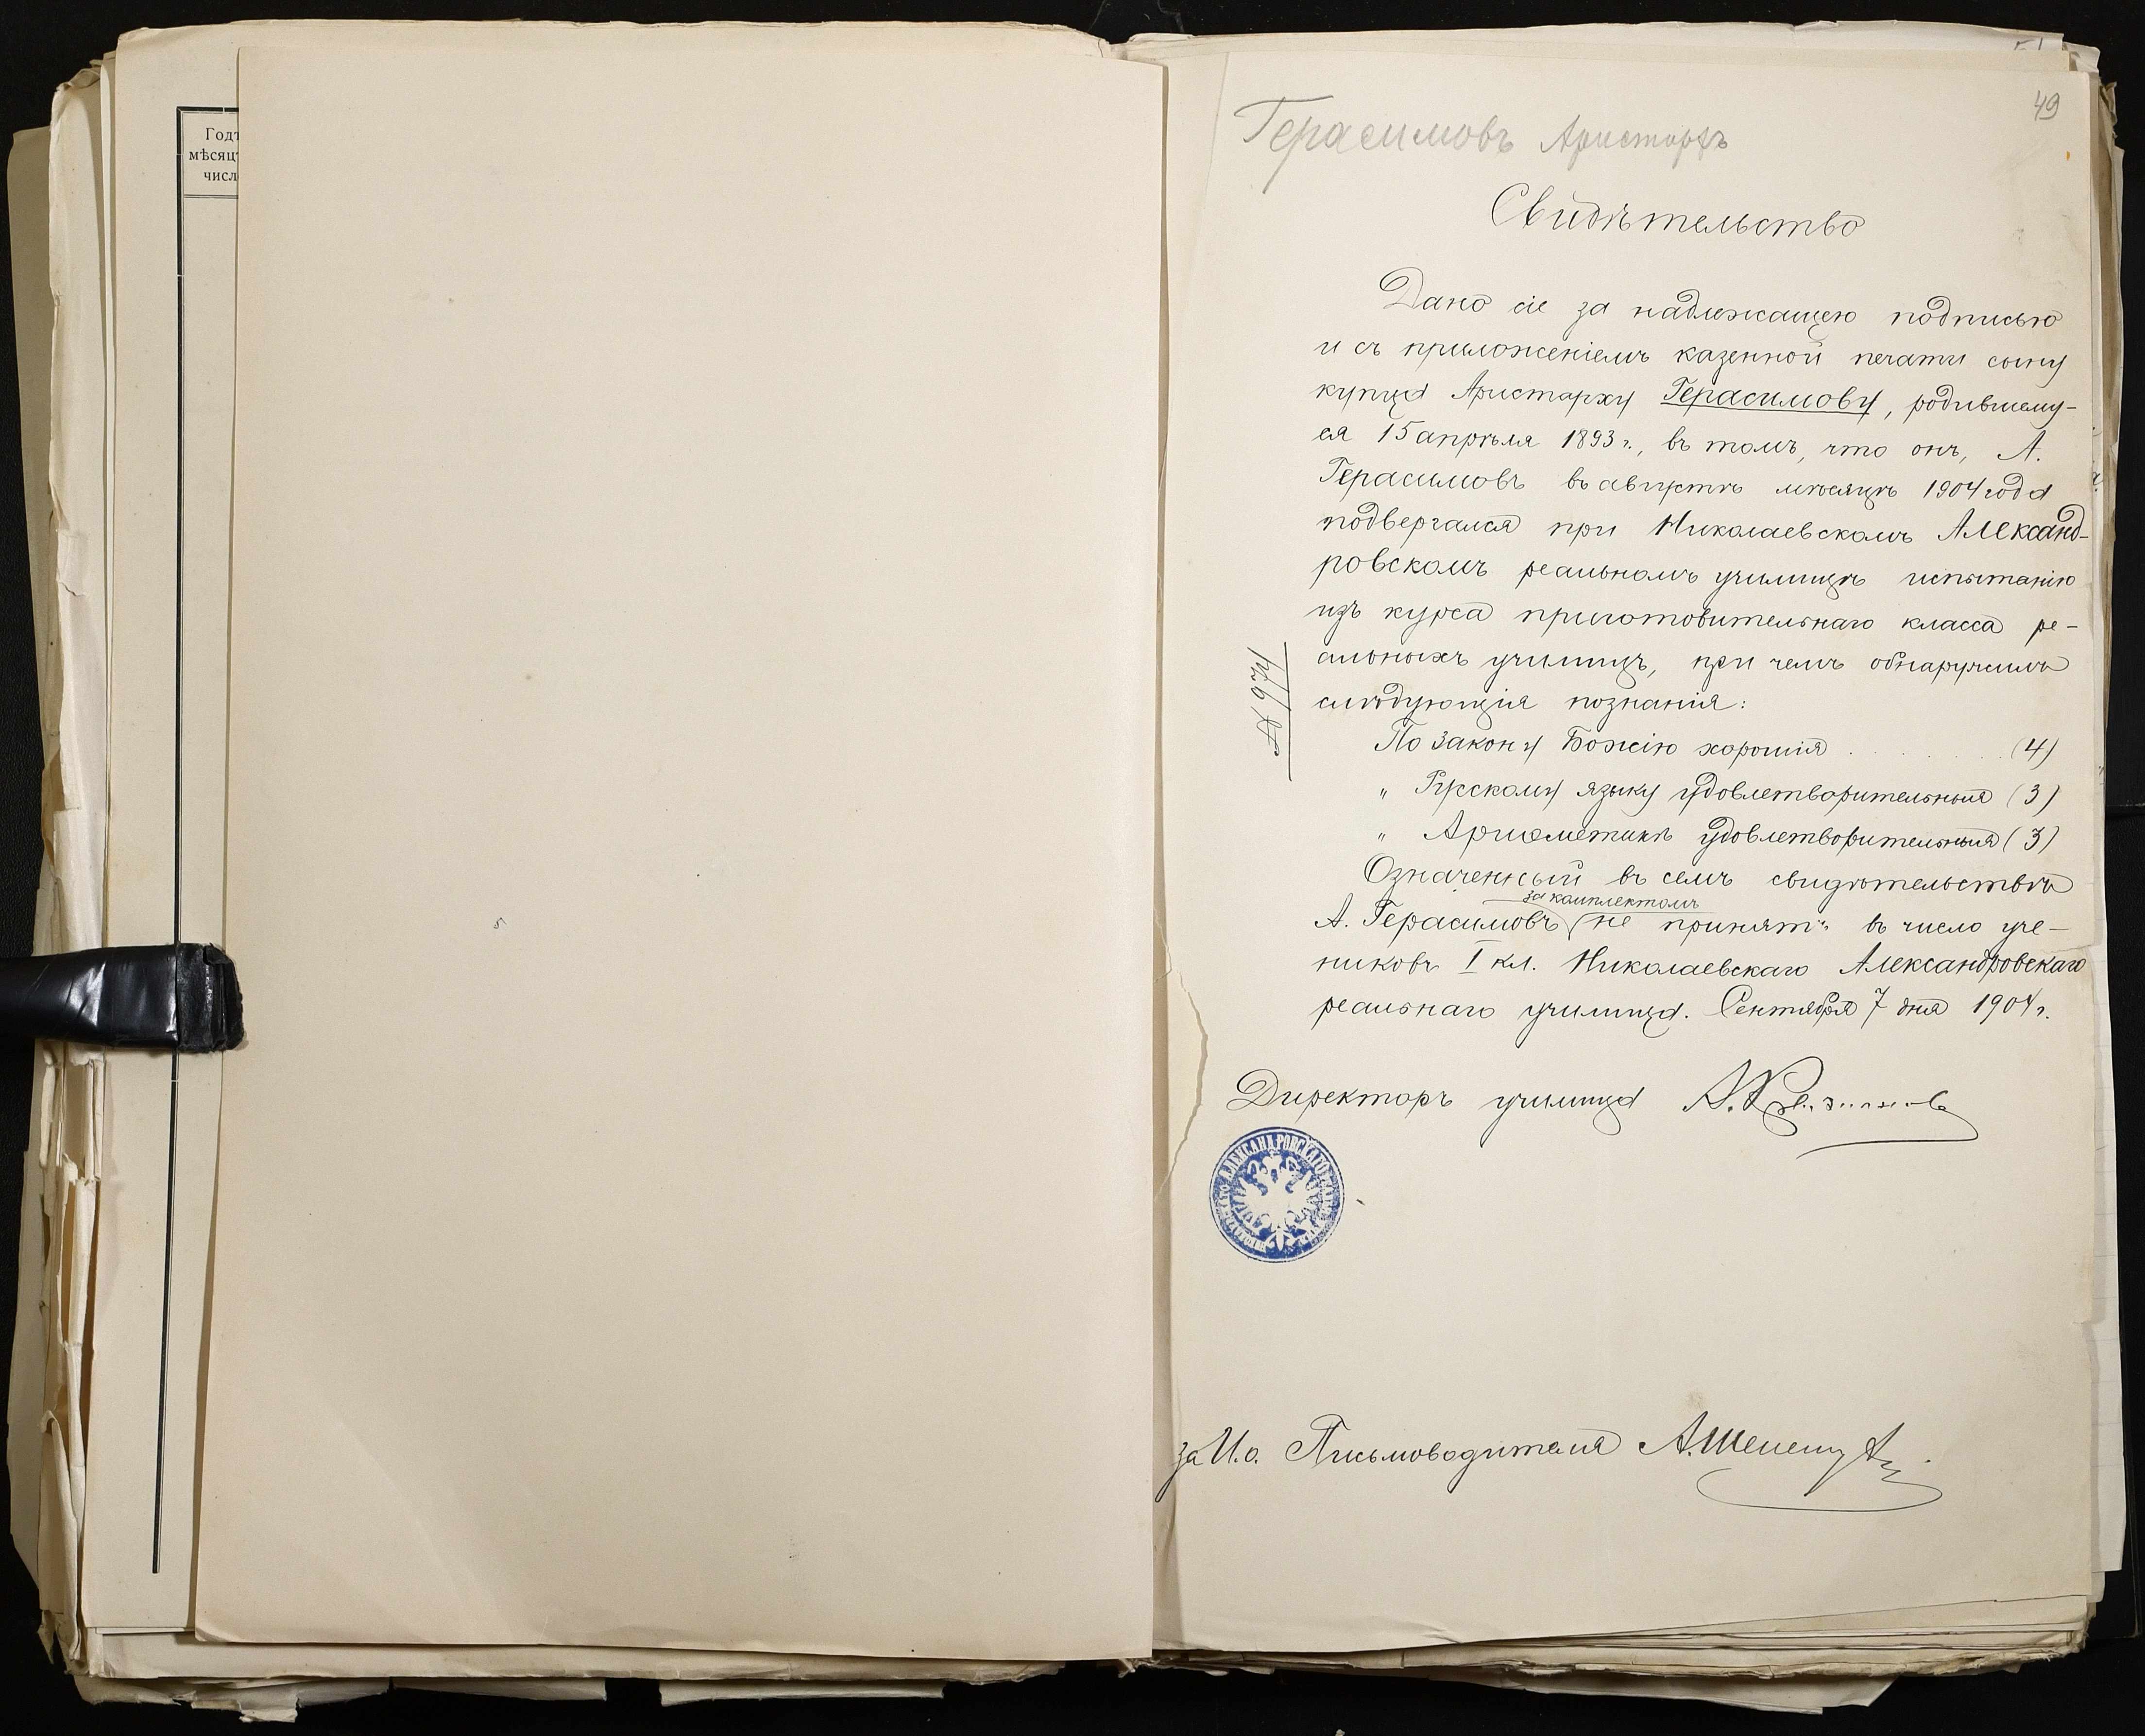 Годъ
мѣсяцъ
число
49
Герасимовъ Аристархъ
Свидѣтельство
Дано сіе за надлежащею подписью
и съ приложеніемъ казенной печати сыну
купца Аристарху Герасимову, родившему-
ся 15 апрѣля 1893 г., въ томъ, что онъ, А.
Герасимовъ въ августѣ мѣсяцѣ 1904 года
подвергался при Николаевскомъ Александ-
ровскомъ реальномъ училищѣ испытанію
изъ курса приготовительнаго класса ре-
альныхъ училищъ, при чемъ обнаружилъ
слѣдующія познанія:
По Закону Божію хорошія . . . . (4)
" Русскому языку удовлетворительныя (3)
" Ариѳметикѣ удовлетворительныя (3)
Означенный въ семъ свидѣтельствѣ
за комплектомъ
А. Герасимовъ не принятъ въ число уче-
никовъ I кл. Николаевскаго Александровскаго
реальнаго училища. Сентября 7 дня 1904 г.
Директоръ училища А.
за И.о. Письмоводителя А.